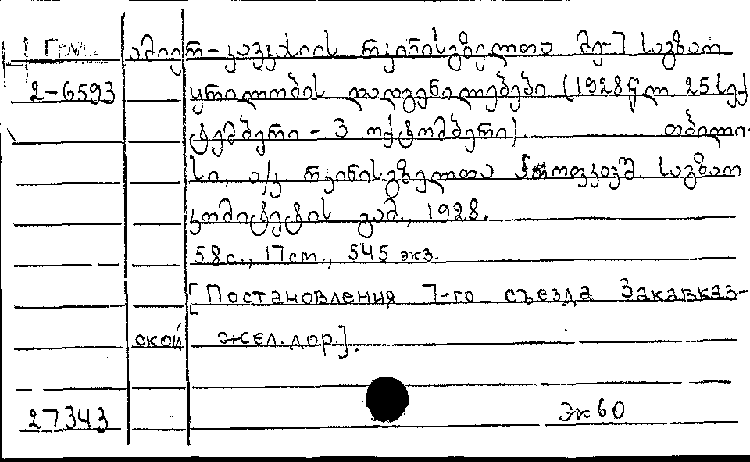 Груз. ამიერ-კავკასიის რკინისგზელთა მე-7 საგზაო
2-6593 ყრილობის დადგენილებები (1928 წლ. 25 სექ
ტემბერი - 3 ოქტომბერი). თბილი-
სი, ა/კ რკინისგზელთა პროფკავშ. საგზაო
კომიტეტის გამ., 1928.
58 с., 17 cm., 545 экз.
[Постановления 7-го съезда Закавказ-
ской жел.дор].
27343 Эк60